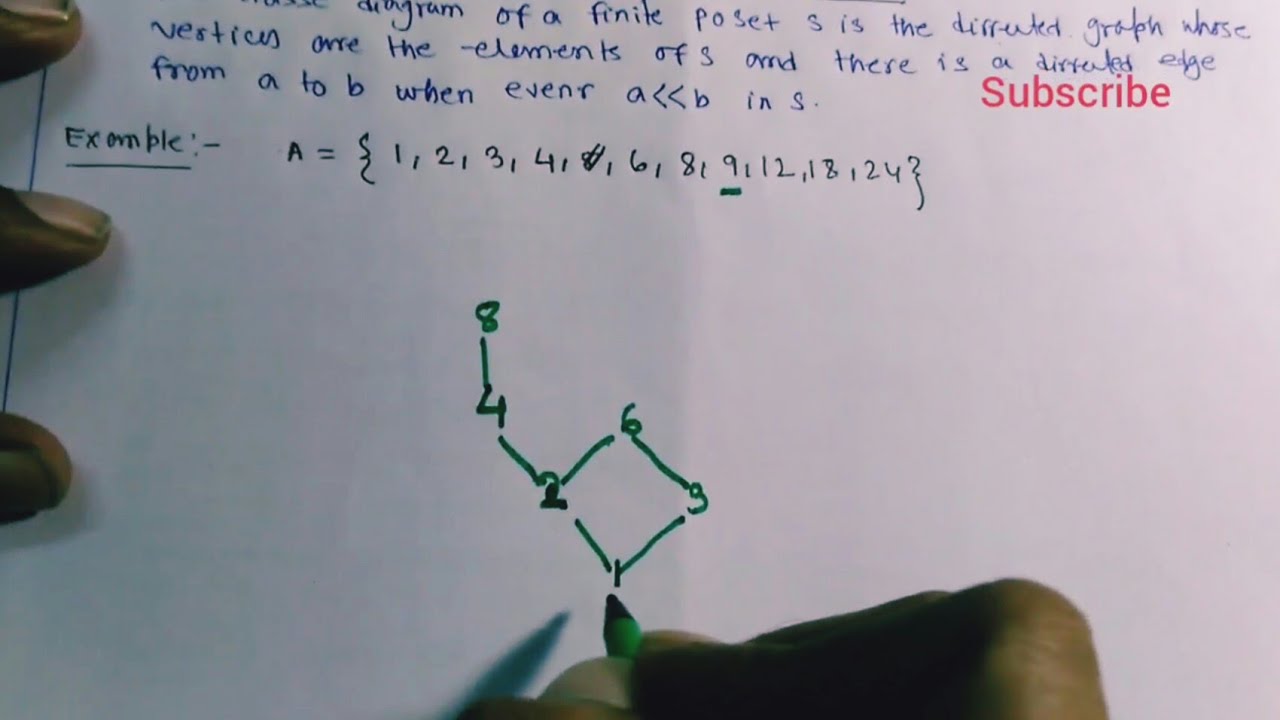 diagram of a finite poset s is the dirruted graph whose
vertices are the elements of s and there is a dirruted edge
from a to b when evenr a<<b in s.
Subscribe
Example:- A = { 1, 2, 3, 4, 6, 8, 9, 12, 18, 24}
8
4
6
2
3
1